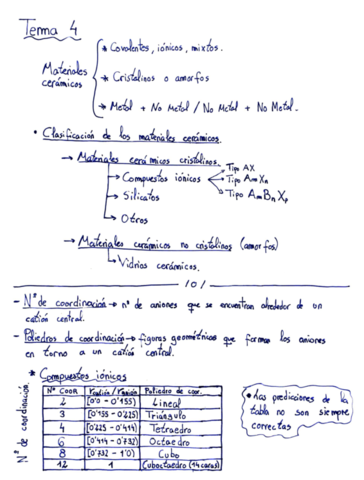 Tema 4
Materiales cerámicos
* Covalentes, iónicos, mixtos.
* Cristalinos o amorfos
* Metal + No Metal / No Metal + No Metal.
• Clasificación de los materiales cerámicos.
→ Materiales cerámicos cristalinos.
→ Compuestos iónicos
→ Tipo AX
→ Tipo AmXn
→ Tipo AmBnXp
→ Silicatos
→ Otros
→ Materiales cerámicos no cristalinos (amorfos)
↳ Vidrios cerámicos.
/0/
- Nº de coordinación → nº de aniones que se encuentran alrededor de un
catión central.
- Poliedros de coordinación → figuras geométricas que forman los aniones
en torno a un catión central.
* Compuestos iónicos
Nº de coordinación.
Nº COOR | rcatión/ranión | Poliedro de coor.
2 | [0'0 - 0'155) | Lineal
3 | [0'155 - 0'225) | Triángulo
4 | [0'225 - 0'414) | Tetraedro
6 | [0'414 - 0'732) | Octaedro
8 | [0'732 - 1'0) | Cubo
12 | 1 | Cuboctaedro (14 caras)
• Las predicciones de la
tabla no son siempre
correctas